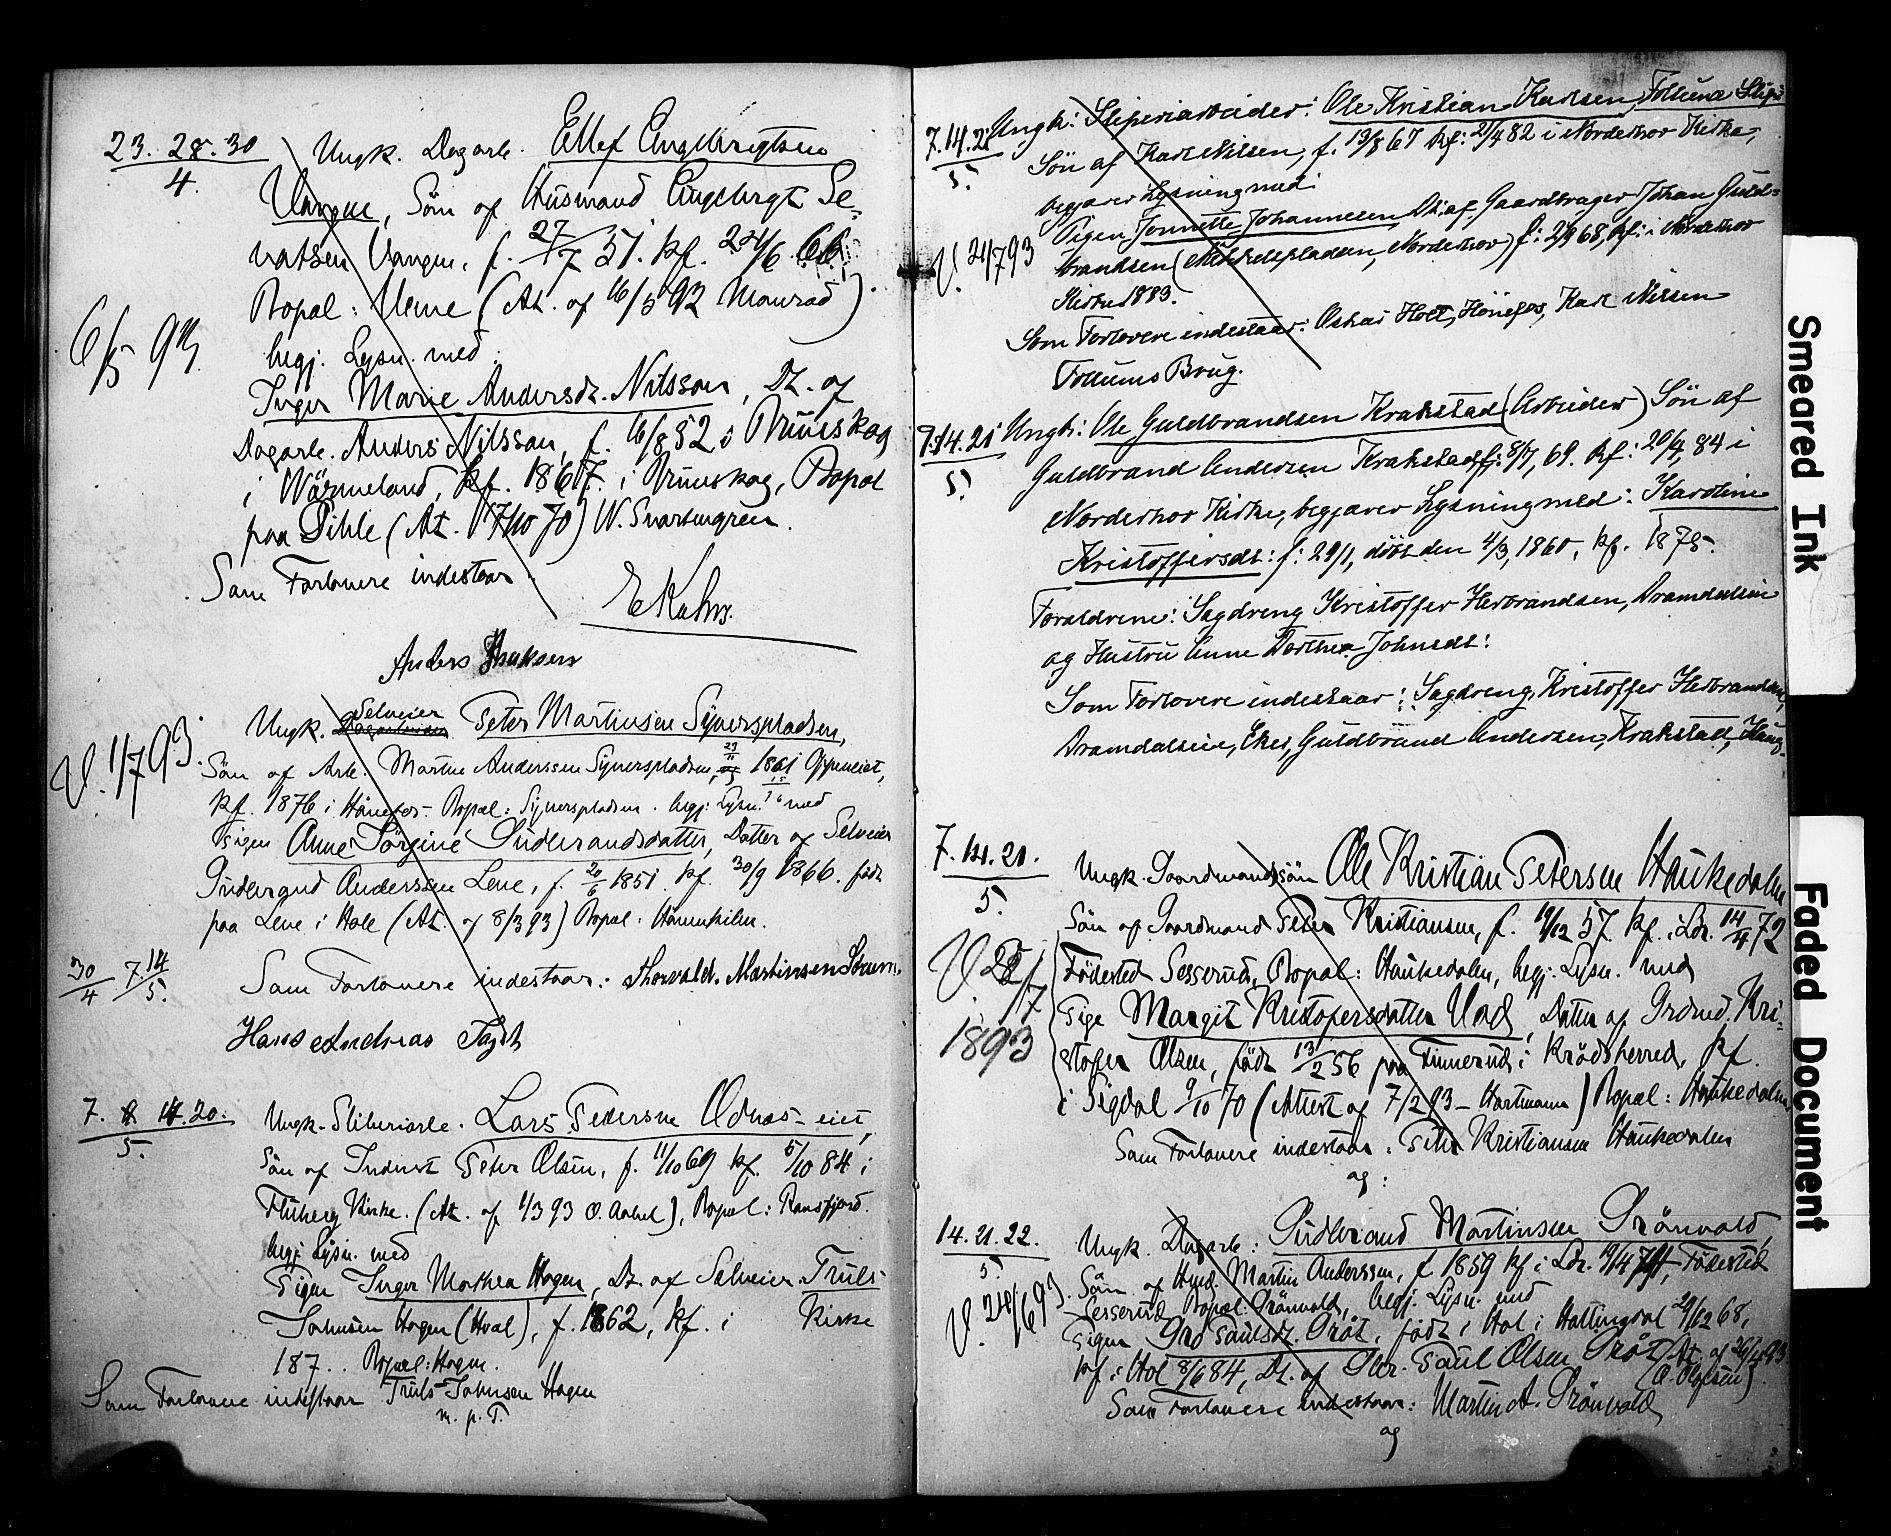 23. 28. 30
4.
Ungk. Dagarb. Ellef Engebrigtsen
Vangen, Søn af Husmand Engebrigt Se-
vatsen Vangen, f. 27/7 51. kf. 24/6 66.
Bopæl: Veme (At. af 16/5 92 Monrad).
begj. Lysn. med:
6/5 93
Inger Marie Andersdt. Nilsson, Dt. af
Dagarb. Anders Nilsson, f. 16/8 52 i
i Wärmeland, kf. 1867. i Bopæl
paa Pihle (At. 17/10 70) W. Svartengren.
Som Forlovere indestaar
Anders
Ungk. Selveier Peter Martinsen Synerspladsen,
V. 1/7 93.
Søn af Arb. Martin Anderssen Synerspladsen, 1861
kf. 1876 i Hønefos. Bopæl: Synerspladsen. begj. Lysn. med
Pigen Anne Sörgine Gudbrandsdatter, Datter af Selveier
Gudbrand Anderssen Lene, f. 20/6 1851. kf. 30/9 1866. født
paa Lene i Hole (At. af 8/3 93) Bopæl:
30/4 7.14/5.
Som Forlovere indestaar: Thorvald. Martinsen
Hans Andreas
7. 14. 20.
5.
Ungk. Sliberiarb. Lars Pedersen Odnæs-eiet,
Søn af Inderst Peter Olsen, f. 11/10 69 kf. 5/10 84 i
Fluberg Kirke. (At. af 1/3 93 O. Aabel), Bopæl: Randsfjord.
begj. Lysn. med
Pigen Inger Mathea Hagen, Dt. af Selveier Truls
Johnsen Hagen (Hval), f. 1862, kf. i Kirke
187 . . Bopæl: Hagen.
Som Forlovere indestaar Truls Johnsen Hagen
m. p. P.
7.14.21
5.
Ungk: Sliperiarbeider: Ole Kristian Karlsen, Follum Slip:
Søn af Karl Nilsen, f. 13/8 67 kf: 2/4 82 i Norderhov Kirke,
begjærer Lysning med:
V. 2/7 93
Pigen Jonnette Johannesen, Dt. af Gaardbruger Johan Guld-
brandsen (, Norderhov) f: 2/9 68, kf: i Norderhov
Kirke 1883.
Som Forlovere indestaar: Oskar Holt, Hønefos, Karl Nilsen
Follums Brug.
7.14.21
5.
Ungk: Ole Guldbrandsen Krakstad (Arbeider) Søn af
Guldbrand Andersen Krakstad, f: 8/7, 69. kf: 20/4, 84 i
Norderhov Kirke, begjærer Lysning med: Karoline
Kristoffersdt: f: 29/1, døbt den 4/3, 1860, kf. 1875.
Forældrene: Sagdreng Kristoffer Herbrandsen, Dramdalseie
og Hustru Anne Dorthea Johnsdt:
Som Forlovere indestaar: Sagdreng, Kristoffer Herbrandsen,
Dramdalseie, Eker, Guldbrand Andersen, Krakstad, Haug.
7. 14. 21.
5.
Ungk. Gaardmandssøn Ole Kristian Petersen Haukedalen
Søn af Gaardmand Peter Kristiansen, f. 19/12 57. kf. i Ldr. 14/4 72
V. 28/7
1893
Fødested Sesserud, Bopæl: Haukedalen, begj. Lysn. med
Pige Margit Kristofersdatter Uad, Datter af Grdmd. Kri-
stofer Olsen, født 13/2 56 paa Finnerud i Krødsherred, kf.
i Sigdal 9/10 70 (Attest af 7/2 93 - Hartmann) Bopæl: Haukedalen
Som Forlovere indestaar: Peter Kristiansen Haukedalen
og:
14. 21. 22.
5.
Ungk. Dagarb: Gudbrand Martinsen Grønvold,
V. 24/6 93.
Søn af Hmd. Martin Anderssen, f. 1859 kf i Ldr. 19/4 74, Fødested
Sesserud, Bopæl: Grønvold, begj. Lysn. med
Pigen Gro Paulsdt. Grøt, født i Hol i Hallingdal 29/12 68,
kf. i Hol 8/6 84, Dt. af Gbr. Paul Olsen Grøt (At. af 26/4 93
Som Forlovere indestaar: Martin A. Grønvold
og
Smeared Ink
Faded Document